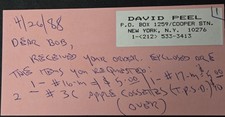 4/26/88
DAVID PEEL
P.O. BOX 1259/COOPER STN.
NEW YORK, N.Y. 10276
1-(212) 533-3413
DEAR BOB,
RECEIVED YOUR ORDER. ENCLOSED ARE
THE ITEMS YOU REQUESTED:
# 3C APPLE CASSETTES
(OVER)